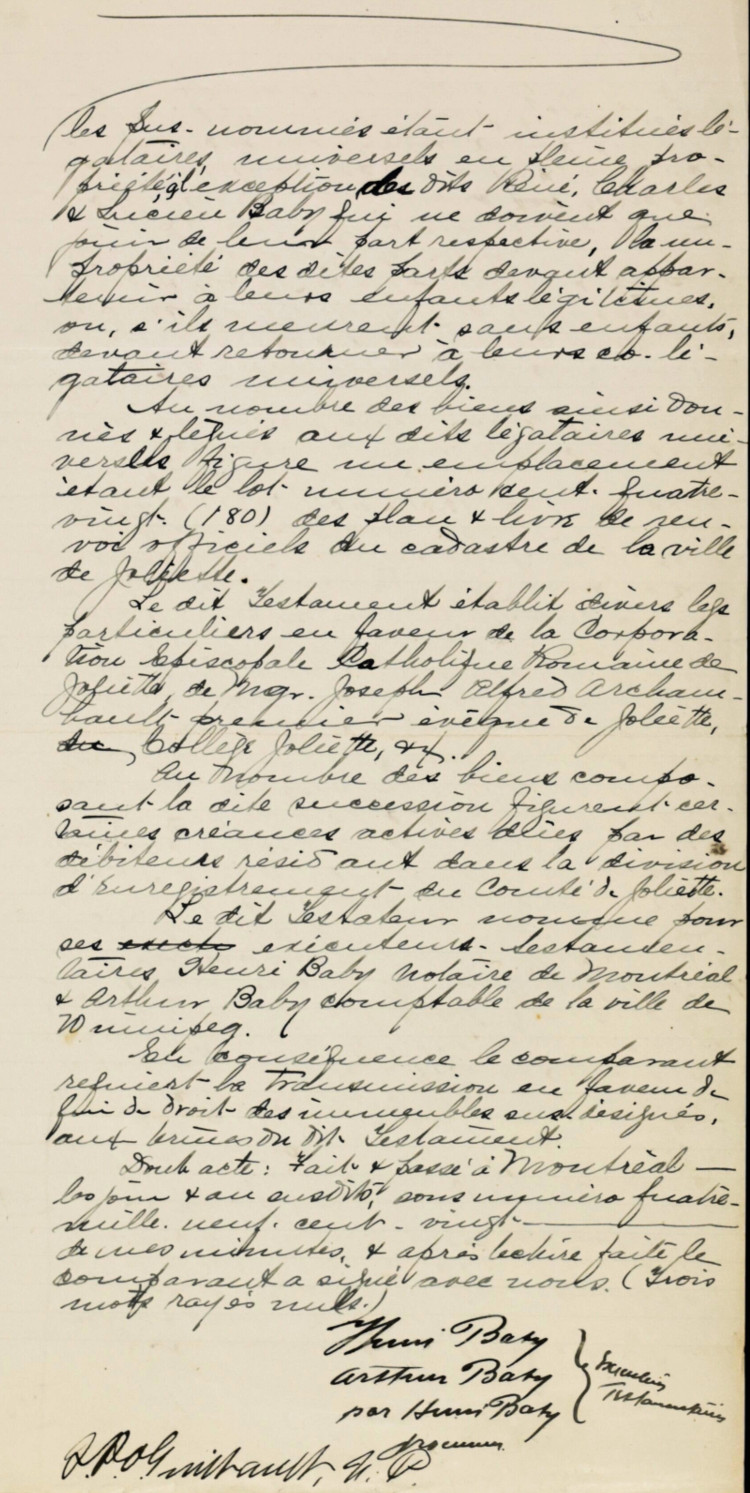 les sus-nommés étant institués lé-
gataires universels en pleine pro-
priété à l'exception des dits René, Charles
& Lucien Baby qui ne doivent que
jouir de leur part respective, la nu-
propriété des dites parts devant appar-
tenir à leurs enfants légitimes,
ou, s'ils meurent sans enfants,
devant retourner à leurs co-lé-
gataires universels.
Au nombre des biens ainsi don-
nés & légués aux dits légataires uni-
versels figure un emplacement
étant le lot numéro cent-quatre-
vingt (180) des plan & livre de ren-
voi officiels du cadastre de la ville
de Joliette.
Le dit Testament établit divers legs
particuliers en faveur de la Corpora-
tion Episcopale Catholique Romaine de
Joliette, de Mgr. Joseph Alfred Archam-
bault premier évêque de Joliette,
du Collège Joliette, &c.
Au nombre des biens compo-
sant la dite succession figurent cer-
taines créances actives dûes par des
débiteurs résidant dans la division
d'Enregistrement du Comté de Joliette.
Le dit Testateur nomme pour
ses exécuteurs-testamen-
taires Henri Baby Notaire de Montréal
& Arthur Baby comptable de la ville de
Winnipeg.
En conséquence le comparant
requiert la Transmission en faveur de
qui de droit des immeubles sus-désignés,
aux termes du dit Testament.
Dont acte: Fait & passé à Montréal —
les jour & an susdits, sous numéro quatre-
mille-neuf-cent-vingt —
de mes minutes, & après lecture faite le
comparant a signé avec nous. (Trois
mots rayés nuls.)
Henri Baby
Arthur Baby
par Henri Baby
procureur
Exécuteurs
Testamentaires
N. P.